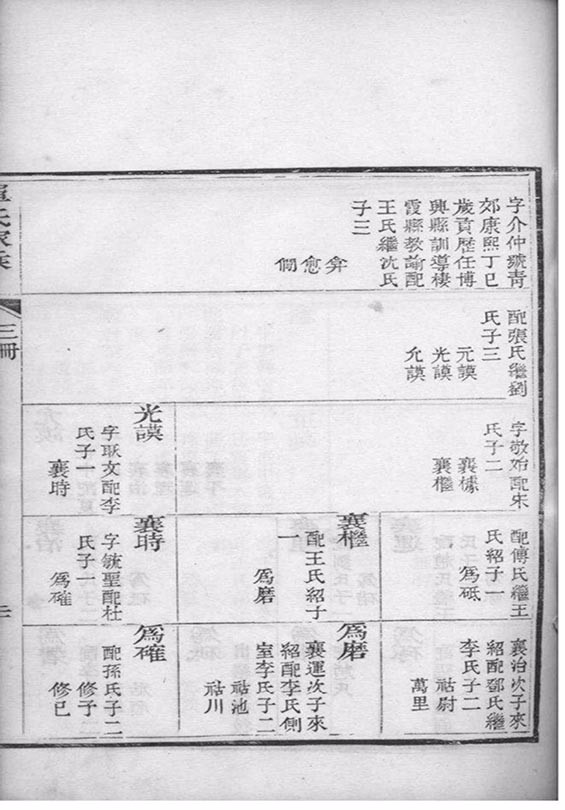 字介仲號青
郊康熙丁巳
歲貢歷任博
興縣訓導棲
霞縣教諭配
王氏繼沈氏
子三
弅
愈
㑏
配張氏繼劉
氏子三
元謨
光謨
允謨
字敬始配宋
氏子二
襄㯫
襄櫤
光謨
字耿文配李
氏子一
襄時
配傅氏繼王
氏紹子一
爲砥
襄櫤
配王氏紹子
一
爲磨
襄時
字毓聖配杜
氏子一
爲確
襄治次子來
紹配鄧氏繼
李氏子二
祜尉
萬里
爲磨
襄運次子來
紹配李氏側
室李氏子二
祜池
祜川
爲確
配孫氏子二
修子
修已
氏家乘
三冊